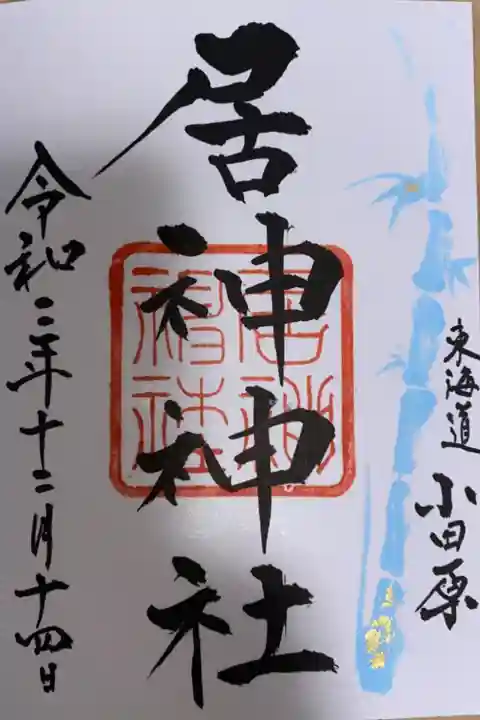 東海道 小田原
居神神社
居神神社
令和二年十二月十四日